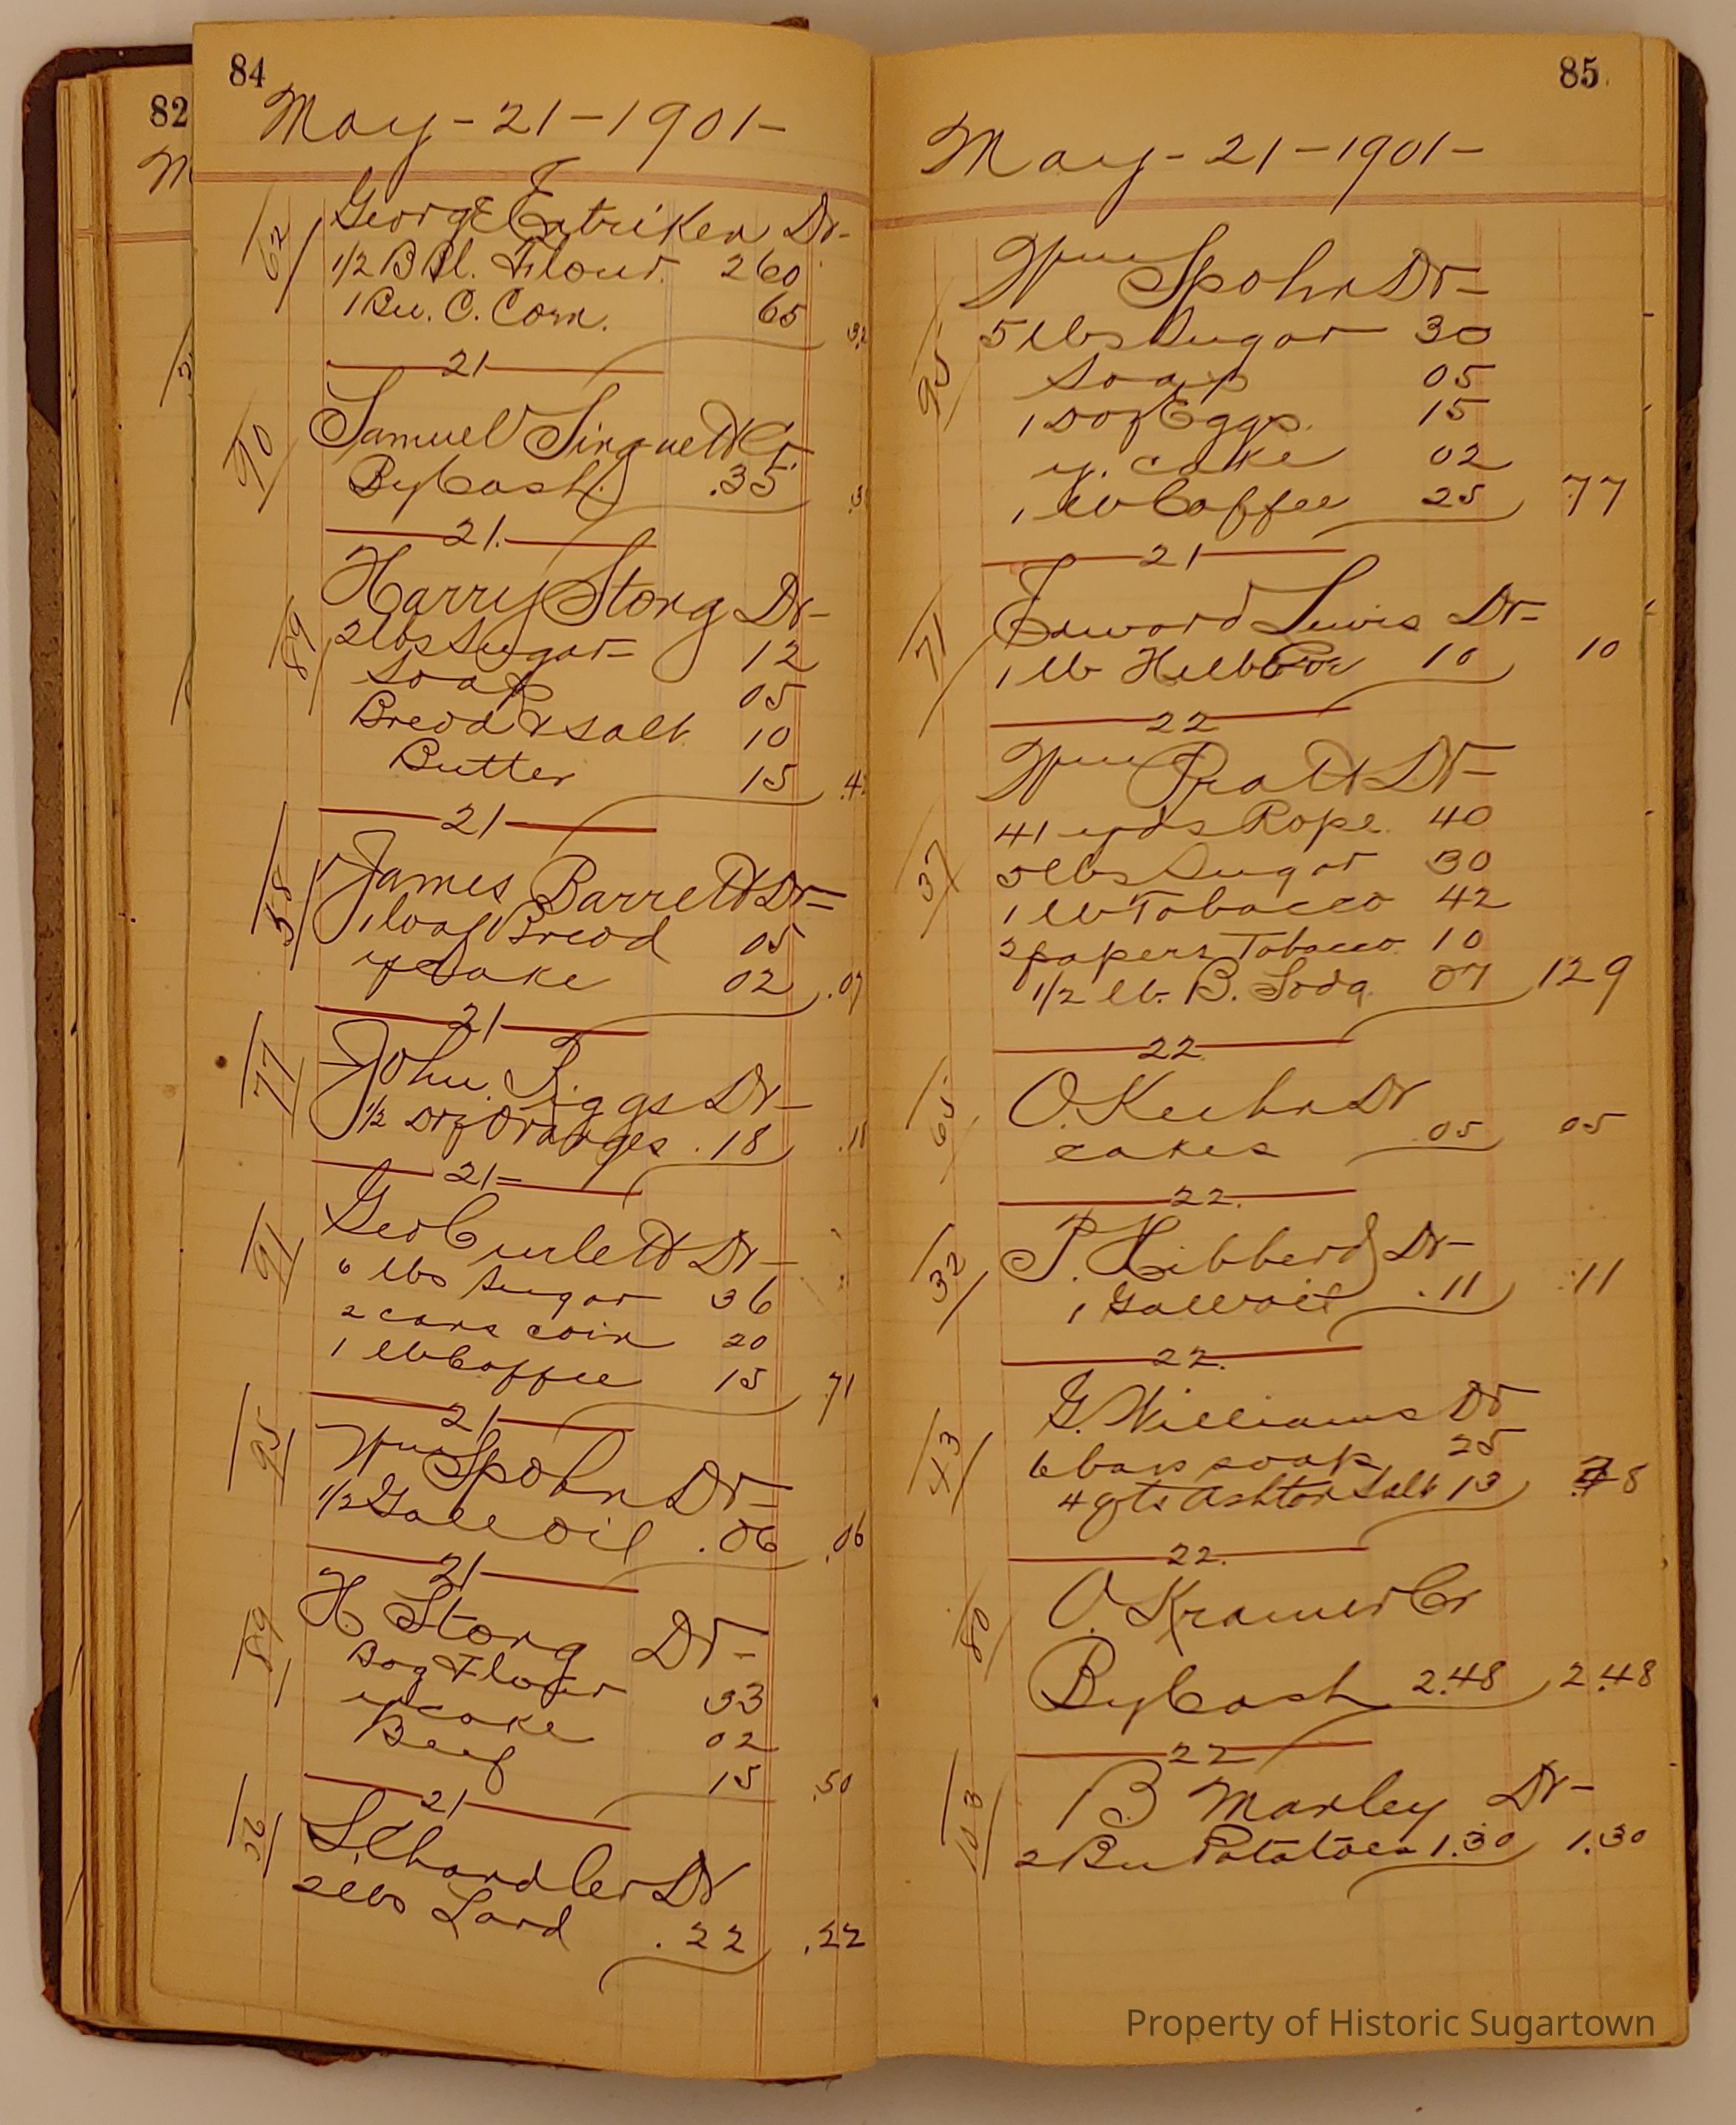 82
M
84
May-21-1901-
62
George Entriken Dr-
1/2 BBl. Flour. 260
1 Bu. C. Corn. 65
21
90
Samuel Singuett Cr.
By Cash .35
21.
89
Harry Storg Dr-
2 lbs Sugar 12
Soap 05
Bread & Salt 10
Butter 15
21
58
James Barrett Dr-
1 loaf Bread 05
y Cake 02 .07
21
77
John Riggs Dr-
1/2 Doz Oranges .18
21-
91
Geo Curlett Dr-
6 lbs Sugar 36
2 cans corn 20
1 lb Coffee 15 71
21
95
Wm Spohn Dr-
1/2 Gall Oil .06 .06
21
89
H Storg Dr-
Bag Flour 33
y cake 02
Beef 15 .50
21
S. Chandler Dr
2 lbs Lard .22 .22
85
May-21-1901-
95
Wm Spohn Dr-
5 lbs Sugar 30
Soap 05
1 Doz Eggs. 15
y. cake 02
1 lb Coffee 25 77
21
71
Edward Lewis Dr-
1 lb 10 10
22
37
Wm Pratt Dr-
41 yds Rope. 40
5 lbs Sugar 30
1 lb Tobacco 42
2 papers Tobacco. 10
1/2 lb. B. Soda. 07 129
22.
65
O. Kuhn Dr
cakes .05 05
22.
32
P. Hibberd Dr-
1 Gall oil .11 .11
22.
43
G. Williams Dr
6 bars soap 25
4 qts Ashton Salt 13 38
22.
80
O. Kramer Cr
By Cash 2.48 2.48
22
103
B Marley Dr-
2 Bu Potatoes 1.30 1.30
Property of Historic Sugartown